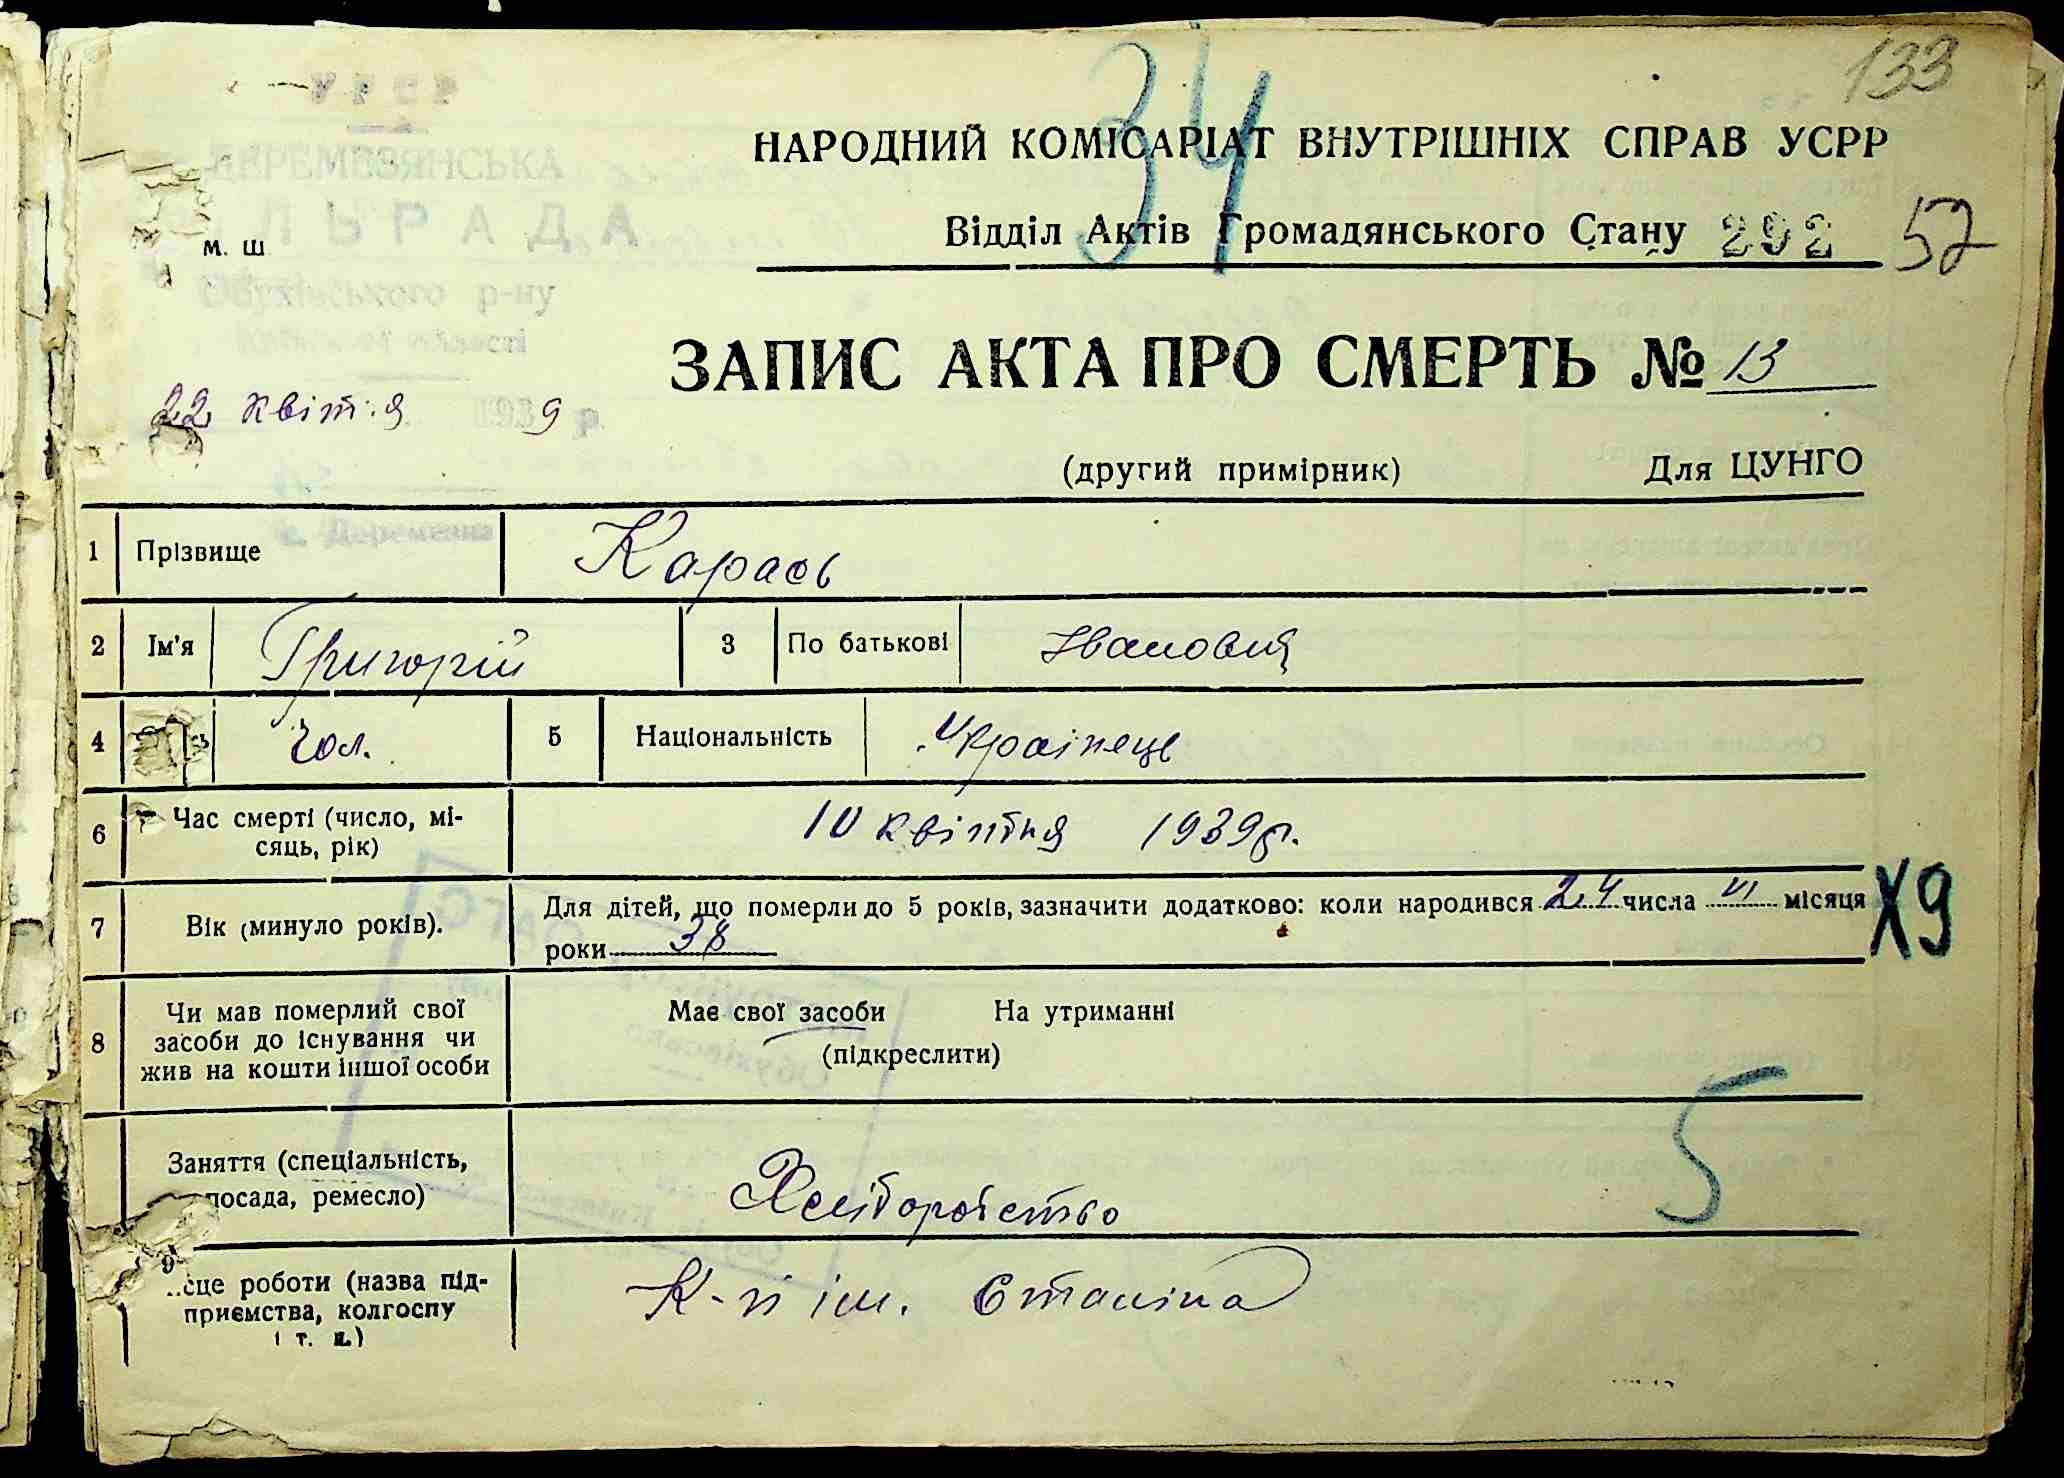 133
34
УРСР
ДЕРЕМЕЗЯНСЬКА
ЛЬРАДА
м. ш
Обухівського р-ну
Київської області
22 квіт.я. 1939 р.
с. Деремезна
НАРОДНИЙ КОМІСАРІАТ ВНУТРІШНІХ СПРАВ УСРР
Відділ Актів Громадянського Стану 292 52
ЗАПИС АКТА ПРО СМЕРТЬ № 13
(другий примірник) Для ЦУНГО
1 Прізвище Карась
2 Ім'я Григорій 3 По батькові Іванович
4 Чол. 5 Національність Українець
6 Час смерті (число, мі-
сяць, рік) 10 квітня 1939 р.
7 Вік (минуло років). Для дітей, що померли до 5 років, зазначити додатково: коли народився 24 числа VI місяця
роки 38
Х9
8 Чи мав померлий свої
засоби до існування чи
жив на кошти іншої особи
Має свої засоби На утриманні
(підкреслити)
5
Заняття (спеціальність,
посада, ремесло) Хліборобство
9
сце роботи (назва під-
приємства, колгоспу
і т. п.) К-п ім. Сталіна